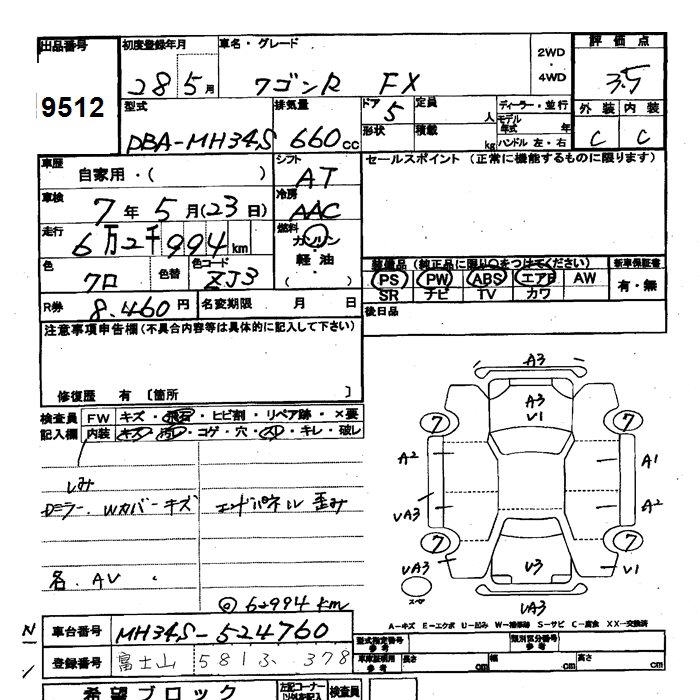 出品番号 初度登録年月 車名・グレード 2WD ・ 4WD 評価点
9512 28 5月 ワゴンR FX 3.5
型式 排気量 ドア 5 定員 人 ディーラー・並行 外装 内装
DBA-MH34S 660cc 形状 積載 kg モデル年式 年 ハンドル 左・右 C C
車歴 自家用・( ) シフト AT セールスポイント(正常に機能するものに限ります)
車検 7年 5月(23日) 冷房 AAC
走行 6万2千994km 燃料 ガソリン
軽油
色 クロ 色替 色コード ZJ3 ( )
装備品(純正品に限り○をつけてください) 新車保証書
PS PW ABS エアB AW 有・無
SR ナビ TV カワ
R券 8.460円 名変期限 月 日 後日品
注意事項申告欄(不具合内容等は具体的に記入して下さい)
修復歴 有 〔箇所 〕
検査員 FW キズ・飛石・ヒビ割・リペア跡・×要
記入欄 内装 キズ・汚レ・コゲ・穴・スレ・キレ・破レ
しみ
Dミラー. Wカバーキズ エンドパネル 歪み
各. AV
◎62994km
A3
A3
V1
7 7
A2 A1
VA3 A2
7 7
VA3 V3 V1
スペア
VA3
A-キズ E-エクボ U-凹み W-補修跡 S-サビ C-腐食 XX-交換済
車台番号 MH34S-524760
登録番号 富士山 581 378
型式指定番号 参考 類別区分番号 参考
車庫証明用 参考 長さ cm 幅 cm 高さ cm
希望ブロック 左記コーナー以外を記入 検査員